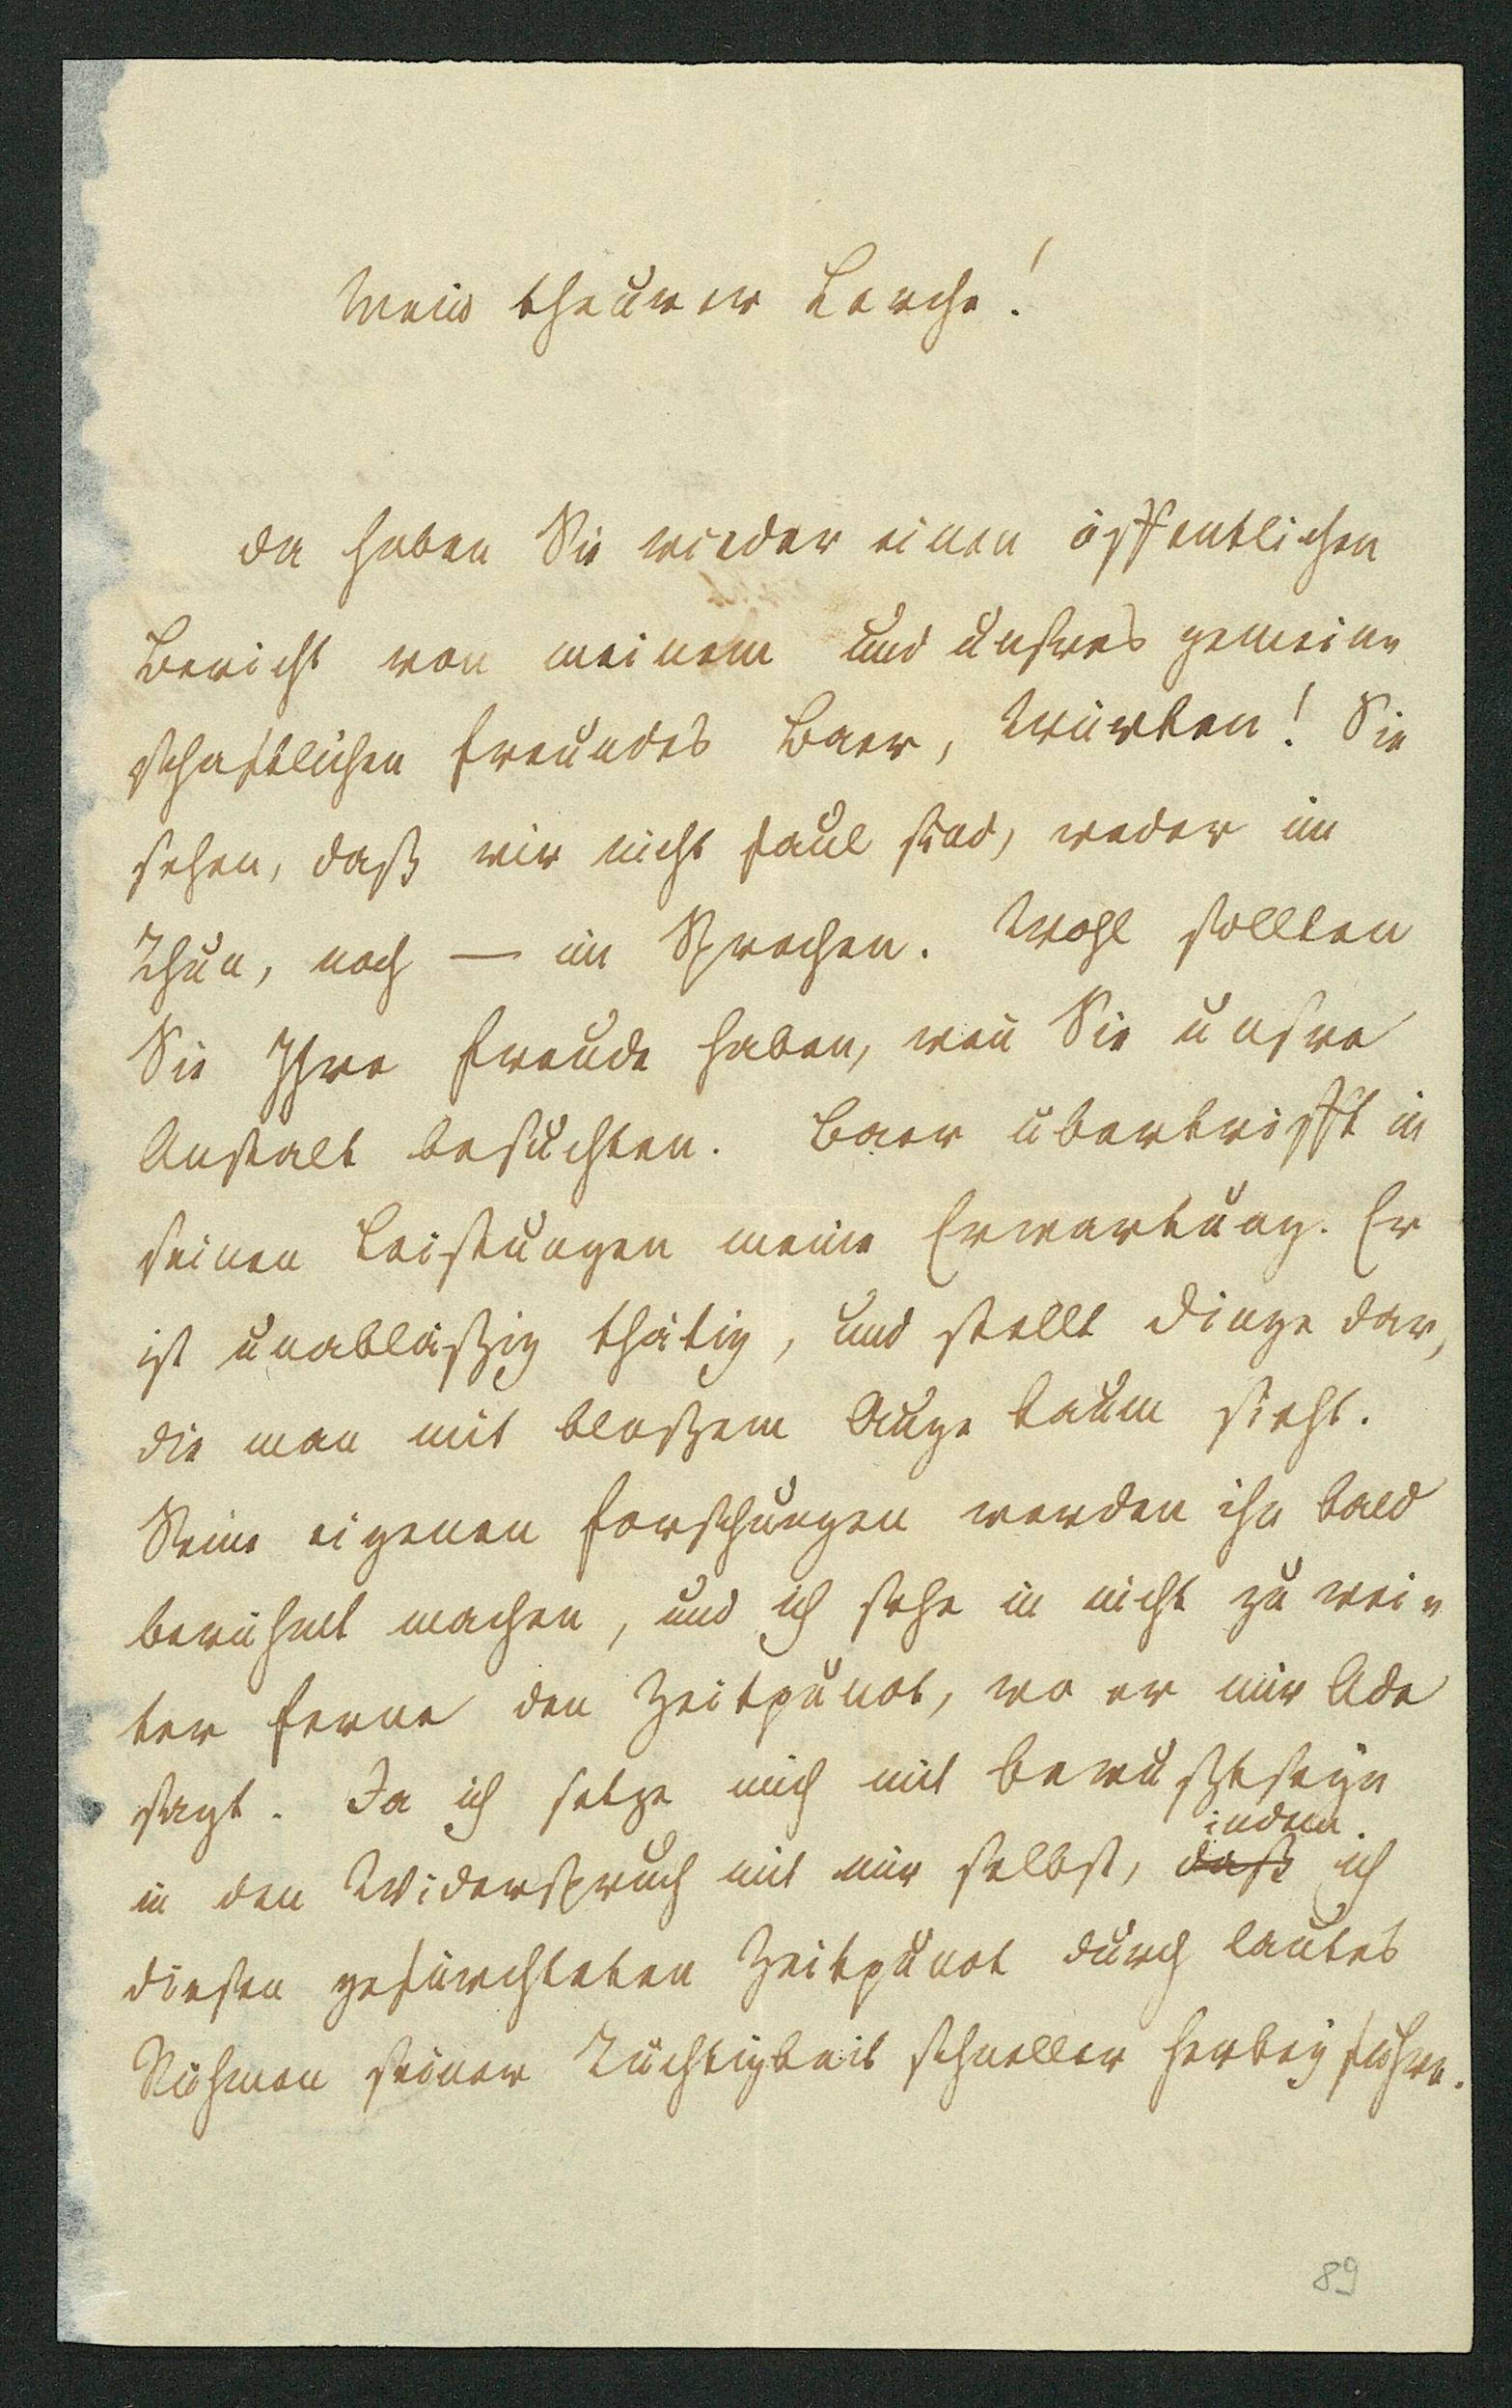 Mein theurer Lerche!
da haben Sie wieder einen öffentlichen
Bericht von meinem und unsres gemein-
schaftlichen Freundes Baer, Würken! Sie
sehen, daß wir nicht faul sind, weder im
Thun, noch — im Sprechen. Wohl sollten
Sie Ihre Freude haben, weñ Sie unsre
Anstalt besuchten. Baer übertrifft in
seinen Leistungen meine Erwartung. Er
ist unabläßig thätig, und stellt Dinge dar,
die man mit bloßem Auge kaum sieht.
Seine eigenen Forschungen werden ihn bald
berühmt machen, und ich sehe in nicht zu wei-
ter Ferne den Zeitpunct, wo er mir Ade
sagt. Ja ich setze mich mit Bewußtseyn
in den Widerspruch mit mir selbst, daß indem ich
diesen gefürchteten Zeitpunct durch lautes
Rühmen seiner Tüchtigkeit schneller herbey führe.
89